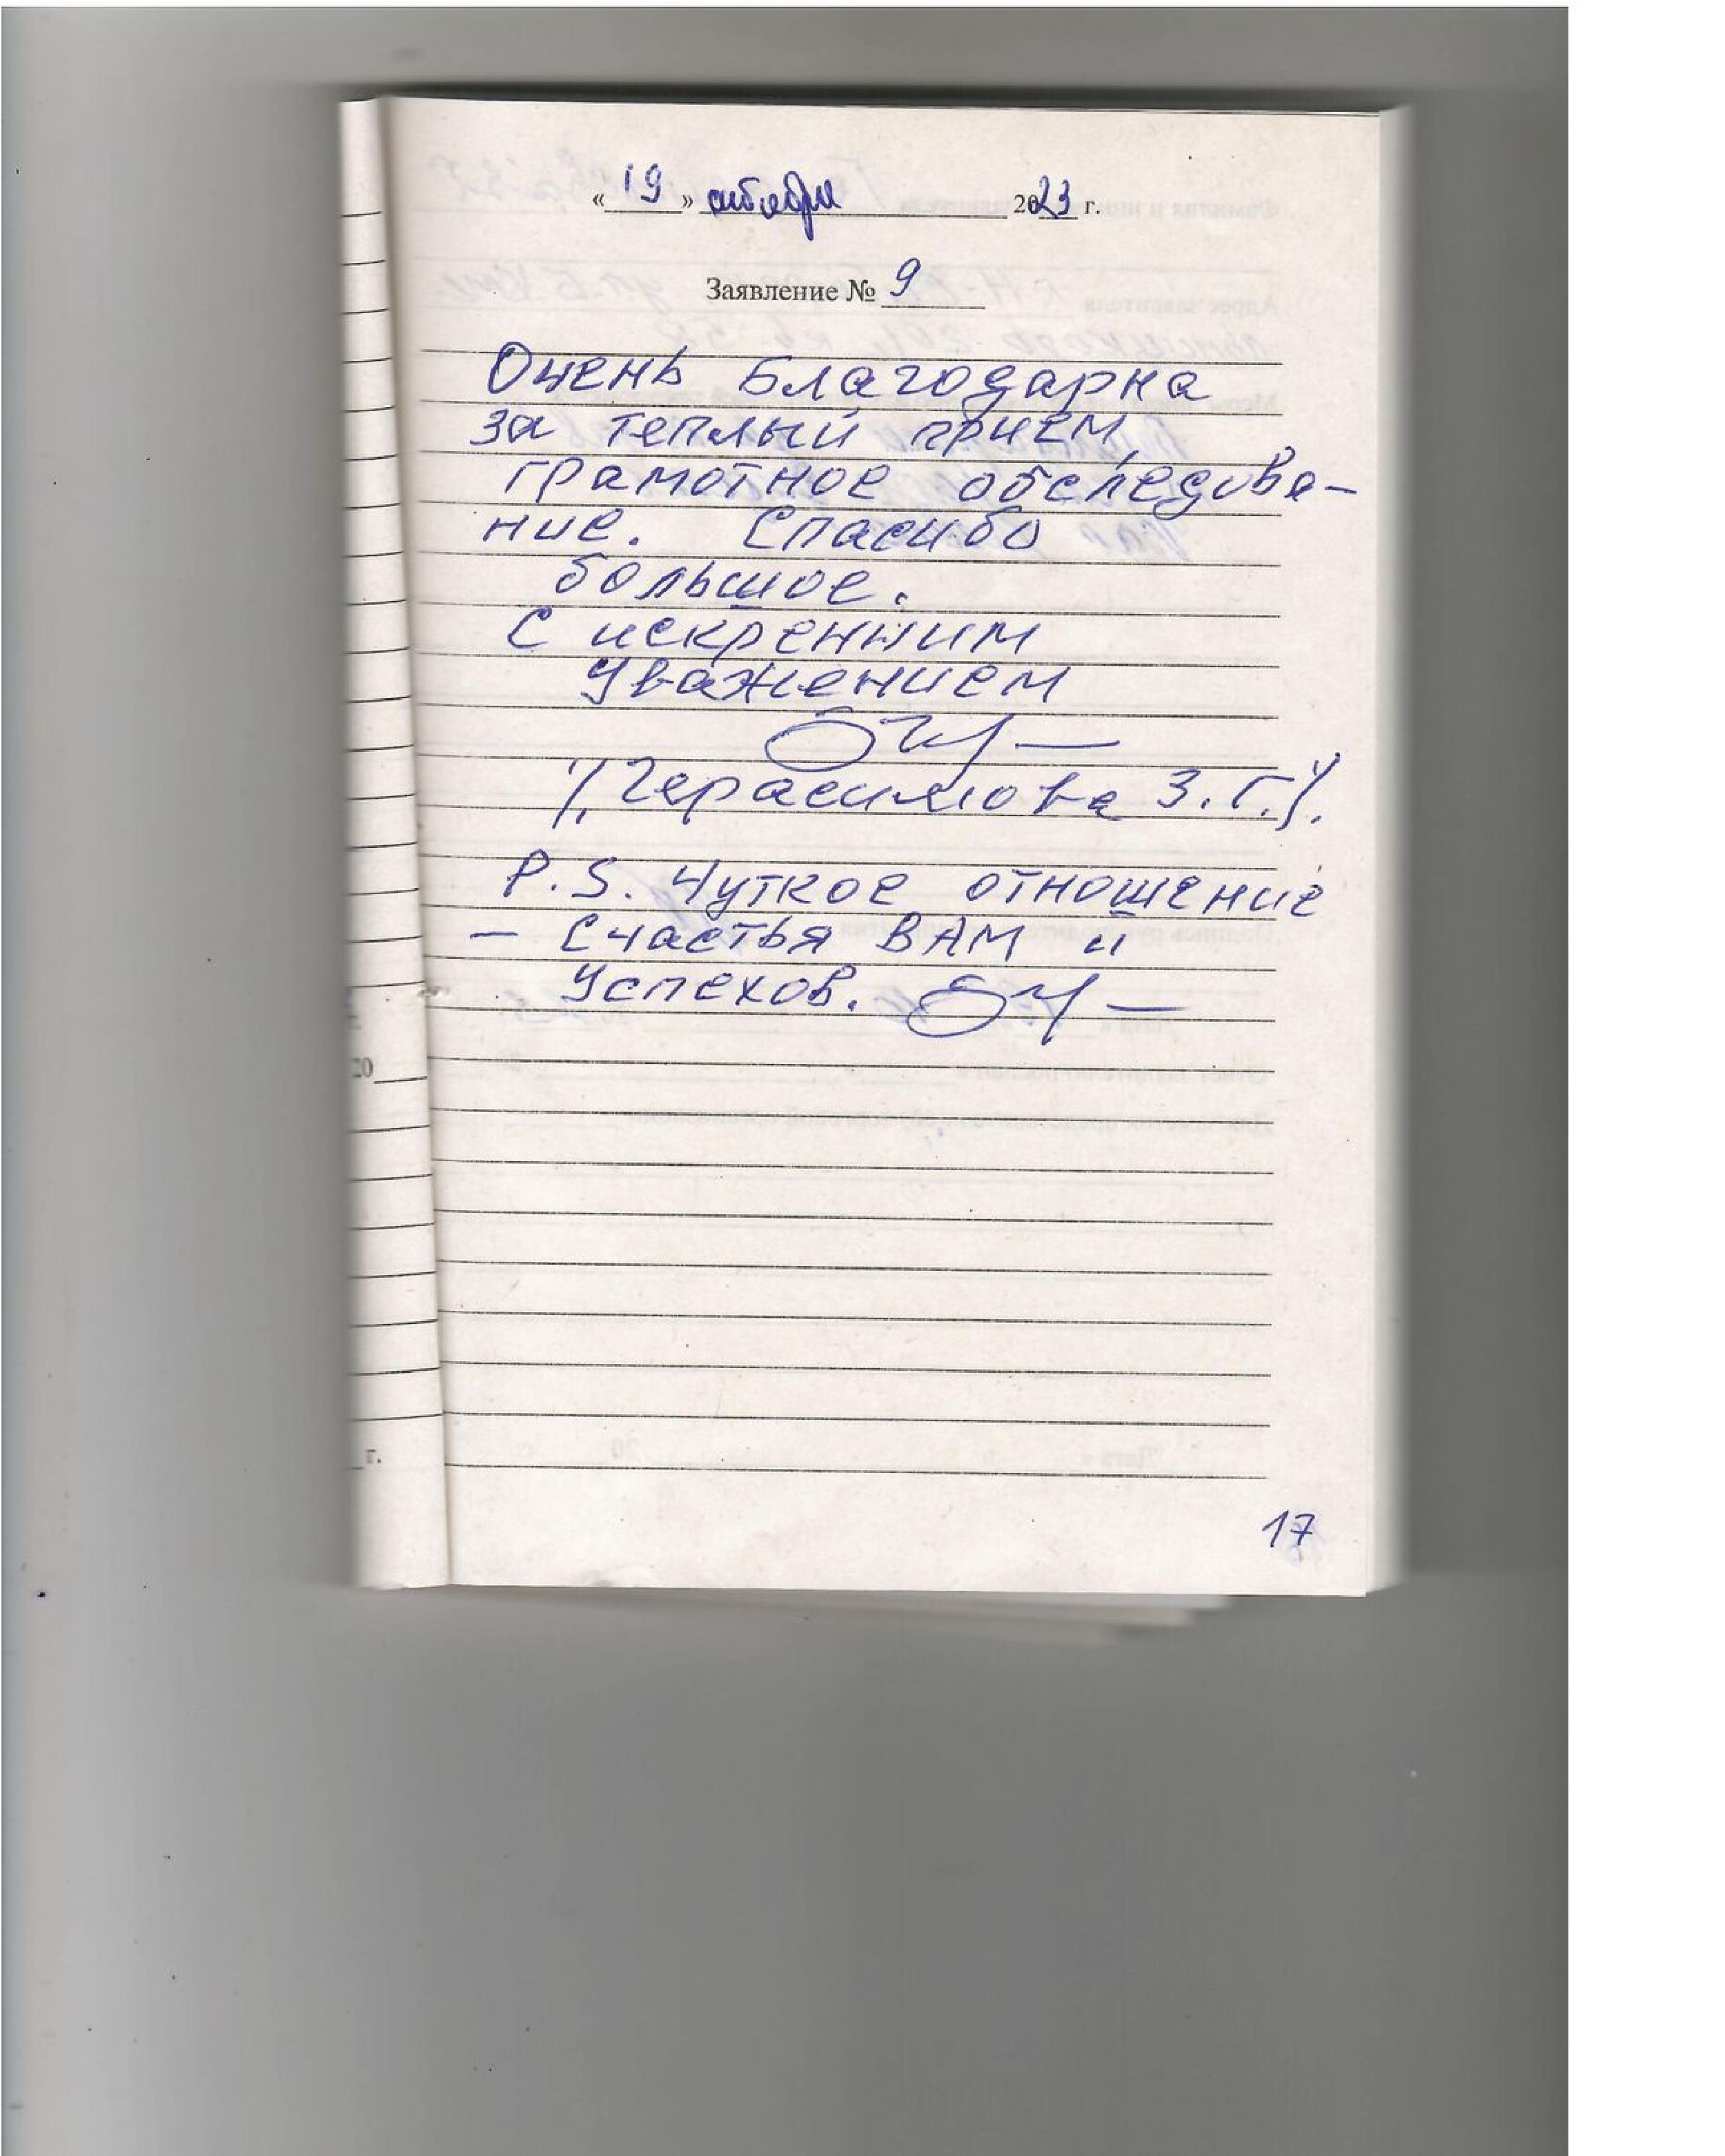 «19» октября 2023 г.
Заявление № 9
Очень благодарна
за теплый прием,
грамотное обследова-
ние. Спасибо
большое.
С искренним
уважением
/Герасимова З.Г./.
P.S. Чуткое отношение
- Счастья ВАМ и
успехов.
20
г.
17